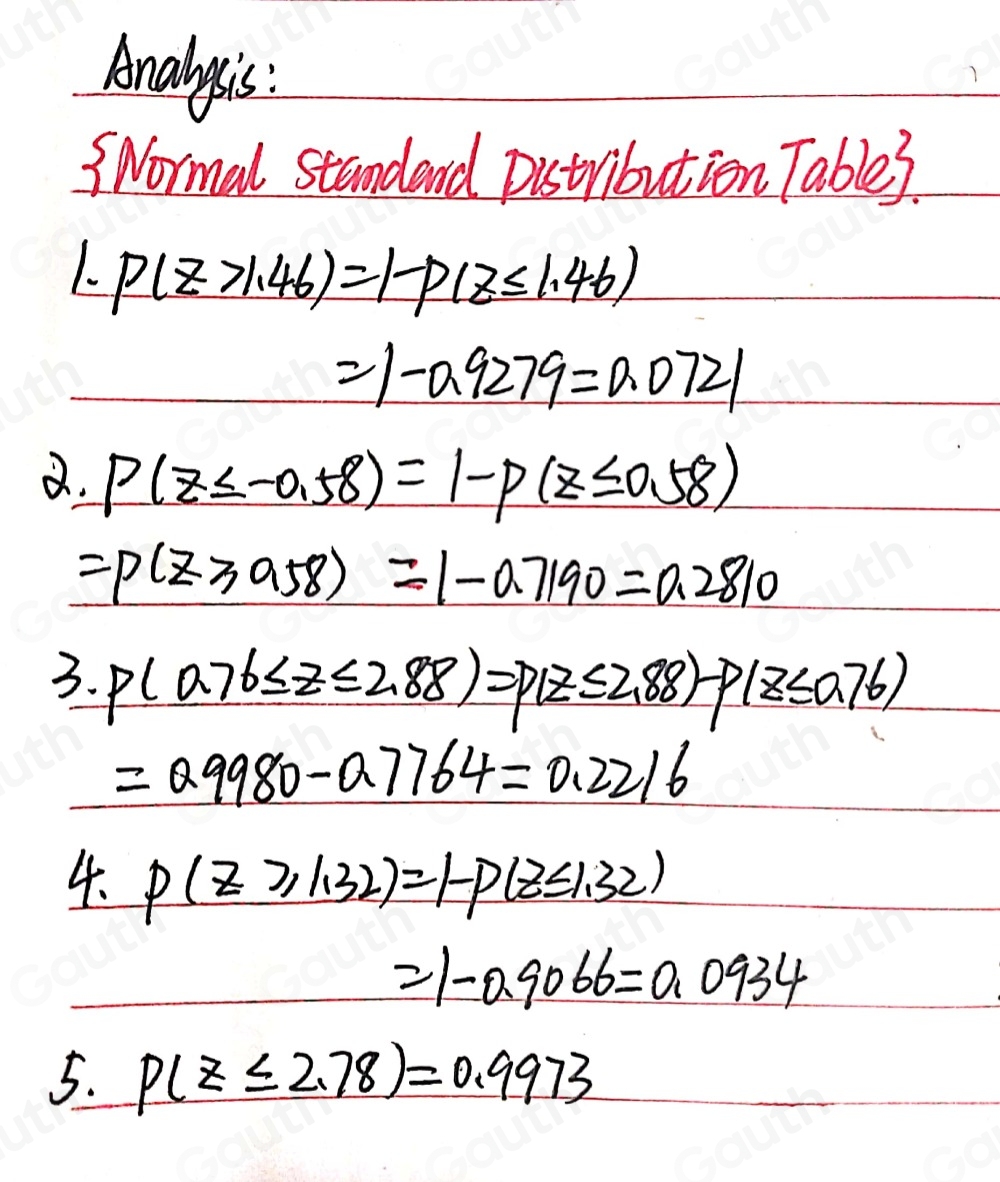 Analysis:
{Normal Standard Distribution Table}.
1. P(Z>1.46)=1-P(Z≤1.46)
=1-0.9279=0.0721
2. P(Z≤-0.58)=1-P(Z≤0.58)
=P(Z≥0.58) =1-0.7190=0.2810
3. P(0.76≤Z≤2.88)=P(Z≤2.88)-P(Z≤0.76)
=0.9980-0.7764=0.2216
4. P(Z≥1.32)=1-P(Z≤1.32)
=1-0.9066=0.0934
5. P(Z≤2.78)=0.9973